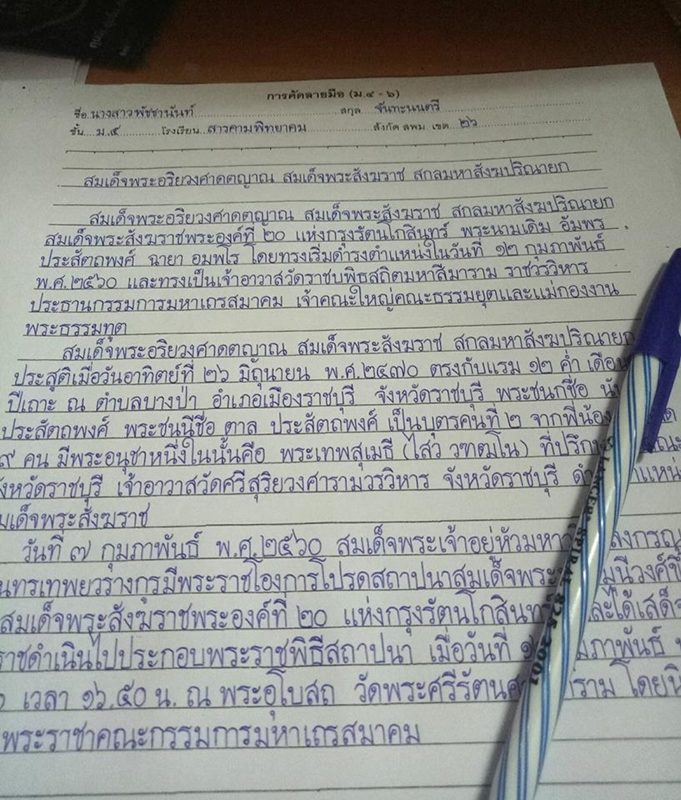 การคัดลายมือ (ม.๔ - ๖)
ชื่อ นางสาวพัชชานันท์ สกุล จันทะนนตรี
ชั้น ม.๕ โรงเรียน สารคามพิทยาคม สังกัด สพม. เขต ๒๖
สมเด็จพระอริยวงศาคตญาณ สมเด็จพระสังฆราช สกลมหาสังฆปริณายก
สมเด็จพระอริยวงศาคตญาณ สมเด็จพระสังฆราช สกลมหาสังฆปริณายก
สมเด็จพระสังฆราชพระองค์ที่ ๒๐ แห่งกรุงรัตนโกสินทร์ พระนามเดิม อัมพร
ประสัตถพงศ์ ฉายา อมฺพโร โดยทรงเริ่มดำรงตำแหน่งในวันที่ ๑๒ กุมภาพันธ์
พ.ศ.๒๕๖๐ และทรงเป็นเจ้าอาวาสวัดราชบพิธสถิตมหาสีมาราม ราชวรวิหาร
ประธานกรรมการมหาเถรสมาคม เจ้าคณะใหญ่คณะธรรมยุตและแม่กองงาน
พระธรรมทูต
สมเด็จพระอริยวงศาคตญาณ สมเด็จพระสังฆราช สกลมหาสังฆปริณายก
ประสูติเมื่อวันอาทิตย์ที่ ๒๖ มิถุนายน พ.ศ.๒๔๗๐ ตรงกับแรม ๑๒ ค่ำ เดือน
ปีเถาะ ณ ตำบลบางป่า อำเภอเมืองราชบุรี จังหวัดราชบุรี พระชนกชื่อ
ประสัตถพงศ์ พระชนนีชื่อ ตาล ประสัตถพงศ์ เป็นบุตรคนที่ ๒ จากพี่น้อง
๙ คน มีพระอนุชาหนึ่งในนั้นคือ พระเทพสุเมธี (ไสว วฑฺฒโน) ที่
จังหวัดราชบุรี เจ้าอาวาสวัดศรีสุริยวงศารามวรวิหาร จังหวัดราชบุรี
สมเด็จพระสังฆราช
วันที่ ๗ กุมภาพันธ์ พ.ศ.๒๕๖๐ สมเด็จพระเจ้าอยู่หัวมหา
นทรเทพยวรางกูรมีพระราชโองการโปรดสถาปนาสมเด็จพระ
สมเด็จพระสังฆราชพระองค์ที่ ๒๐ แห่งกรุงรัตนโกสินทร์ และได้เสด็จ
ราชดำเนินไปประกอบพระราชพิธีสถาปนา เมื่อวันที่ กุมภาพันธ์
เวลา ๑๖.๕๐ น. ณ พระอุโบสถ วัดพระศรีรัตน โดย
พระราชาคณะกรรมการมหาเถรสมาคม